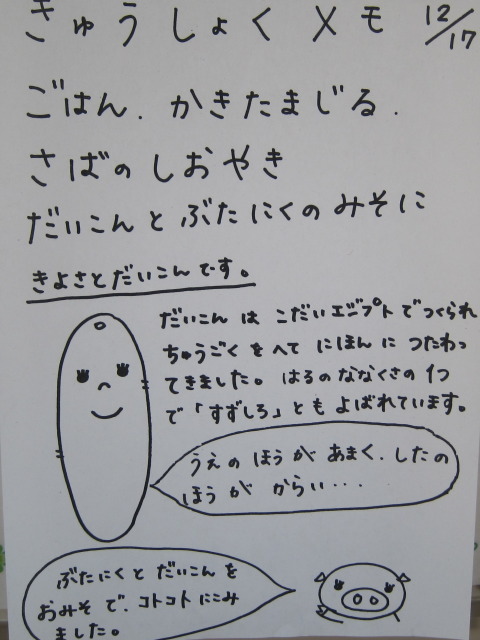 きゅうしょくメモ 12/17
ごはん.かきたまじる.
さばのしおやき
だいこんとぶたにくのみそに
きよさとだいこんです。
だいこんはこだいエジプトでつくられ
ちゅうごくをへてにほんにつたわっ
てきました。はるのななくさの1つ
で「すずしろ」ともよばれています。
うえのほうがあまく.したの
ほうがからい・・・
ぶたにくとだいこんを
おみそで.コトコトにこみ
ました。